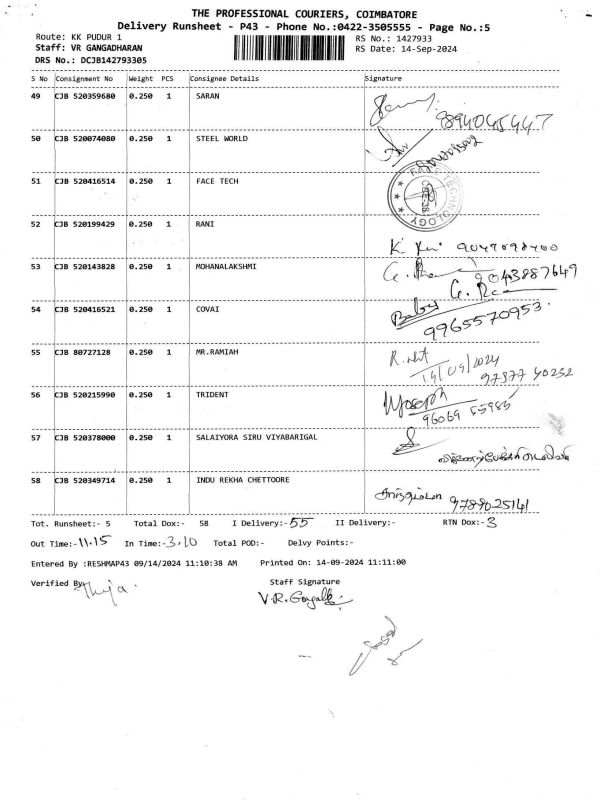 THE PROFESSIONAL COURIERS, COIMBATORE
Delivery Runsheet - P43 - Phone No.:0422-3505555 - Page No.:5
Route: KK PUDUR 1
RS No.: 1427933
Staff: VR GANGADHARAN
RS Date: 14-Sep-2024
DRS No.: DCJB142793305
S No Consignment No Weight PCS Consignee Details Signature
49 CJB 520359680 0.250 1 SARAN
894045447
50 CJB 520074080 0.250 1 STEEL WORLD
51 CJB 520416514 0.250 1 FACE TECH
FACE TECHNOLOGY
CBE-38
52 CJB 520199429 0.250 1 RANI
53 CJB 520143828 0.250 1 MOHANALAKSHMI
9043887649
54 CJB 520416521 0.250 1 COVAI
Babu
9965570953.
55 CJB 80727128 0.250 1 MR.RAMIAH
14/09/2024
97877 40232
56 CJB 520215990 0.250 1 TRIDENT
Joseph
57 CJB 520378000 0.250 1 SALAIYORA SIRU VIYABARIGAL
58 CJB 520349714 0.250 1 INDU REKHA CHETTOORE
9789025141
Tot. Runsheet:- 5 Total Dox:- 58 I Delivery:- 55 II Delivery:- RTN Dox:- 3
Out Time:- 11.15 In Time:- 3.10 Total POD:- Delvy Points:-
Entered By :RESHMAP43 09/14/2024 11:10:38 AM Printed On: 14-09-2024 11:11:00
Verified By
Staff Signature